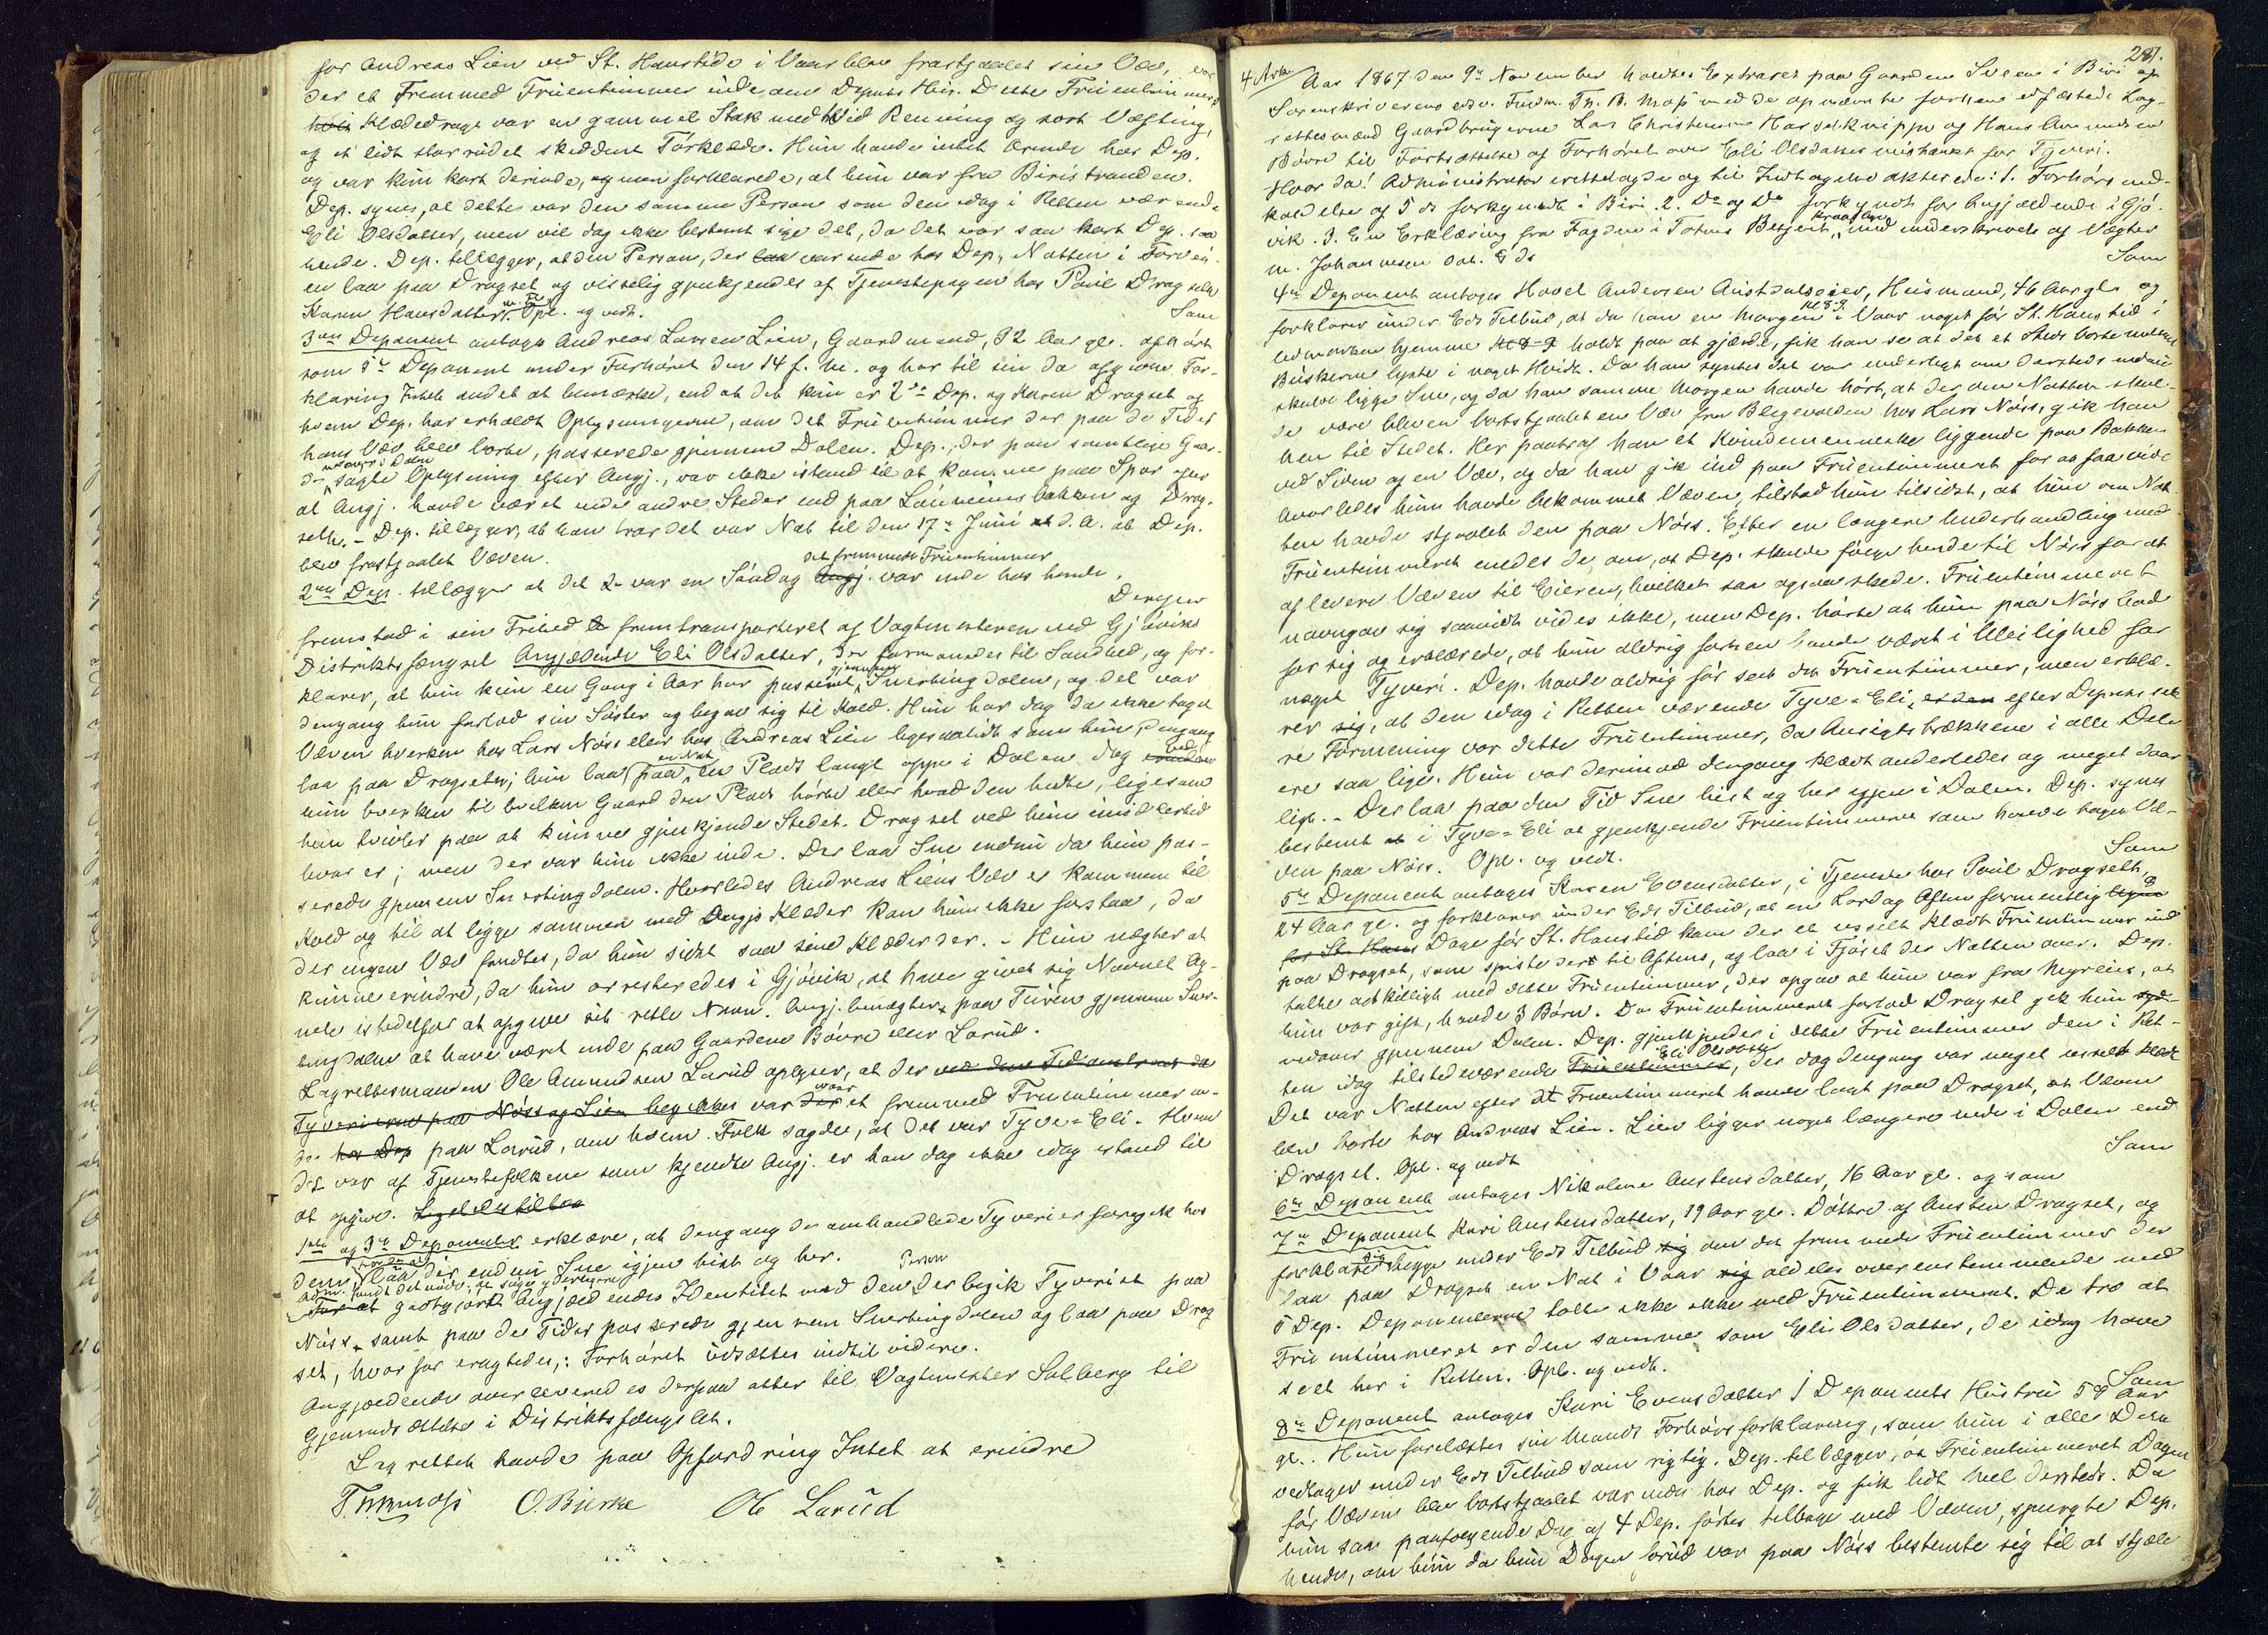 for Andreas Lien ved St. Hanstide i Vaar blev frastjaalet sin Væv, var
der et Fremmed Fruentimmer inde om Depnts Huus. Dette Fruentimmers
Klædedragt var en gammel Stak med hvid Renning og sort Væfting,
og et lidt storrudet skiddent Tørklæde. Hun havde intet Ærende hos Dep.
og var kun kort derinde, og men forklarede, at hun var fra Biristranden.
Dep. synes, at dette var den samme Person som den idag i Retten værende
Eli Olsdatter, men vil dog ikke bestemt sige det, da det var saa kort Dep. saa
hende. Dep. tillægger, at den Person, der laa var inde hos Dep., Natten i Forvei-
en laa paa Dragset og visselig gjenkjendes af Tjenestepigen hos Poul Dragseth
Karen Hansdatter. Opl. og vedt. Som
3die Deponent antoges Andreas Larsen Lien, Gaardmand, 92 Aar gl. afhørt
som 5te Deponent under Forhøret den 14 f. M. og har til sin da afgivne For-
klaring Intet andet at bemærke, end at det kun er 2den Dep. og Karen Dragset af
hvem Dep. har erholdt Oplysningerne, om det Fruentimmer der paa de Tider
hans Væv blev borte, passerede gjennem Dalen. Dep., der paa samtlige Gaar-
de mange i Dalen søgte Oplysning efter Angj., var ikke istand til at komme paa Spor efter
at Angj. havde været inde andre Steder end paa Lønneimsbakken og Drag-
seth. - Dep. tillægger, at han tror det var Nat til den 17de Juni d. A. at Dep.
blev frastjaalet Væven.
2den Dep. tillægger at det var en Søndag det fremmede Fruentimmer Angj. var inde hos hende.
Derpaa
fremstod i sin Frihed fremtransporteret af Vagtmesteren ved Gjøviks
Distriktsfængsel Angjeldende Eli Olsdatter, der formanedes til Sandhed, og for-
klarer, at hun kun en Gang i Aar har passeret gjennem Snertingdalen, og det var
dengang hun forlod sin Søster og begav sig til Kold. Hun har dog da ikke taget
Væven hverken hos Lars Nøss eller hos Andreas Lien ligesaalidt som hun dengang
laa paa Dragseth; hun laa en Nat paa en Plads langt oppe i Dalen dog ved
hun hverken til hvilken Gaard den Plads hørte eller hvad den hedte, ligesom
hun tvivler paa at kunne gjenkjende Stedet. Dragset ved hun imidlertid
hvor er; men der var hun ikke inde. Der laa Sne endnu da hun pas-
serede gjennem Snertingdalen. Hvorledes Andreas Liens Væv er kommen til
Kold og til at ligge sammen med Angjs Klæder kan hun ikke forstaa, da
der ingen Væv fandtes, da hun sidst saa sine Klæder der. - Hun nægter at
kunne erindre, da hun arresteredes i Gjøvik, at have givet sig Navnet Ag-
nete istedetfor at opgive sit rette Navn. Angj. benægter paa Turen gjennem Snert-
ingdalen at have været inde paa Gaardene Bøvre eller Larud.
Lagrettesmanden Ole Amundsen Larud oplyser, at der ved den Tid omtrent da
Tyverierne paa Nøss og Lien begikkes var der et fremmed Fruentimmer in-
de hos Dep paa Larud, om hvem Folk sagde, at det var Tyve-Eli. Hvem
det var af Tjenestefolkene som kjendte Angj. er han dog ikke idag istand til
at opgive.
1ste og 3die Deponenter erklære, at dengang de omhandlede Tyverier foregik hos
dem, laa der endnu Sne igjen hist og her.
Adm. fandt det nødv. at søge yderligere
For at godtgjort Angjældendes Identitet med den Person der begik Tyveriet paa
Nøss, samt paa de Tider passerede gjennem Snertingdalen og laa paa Drag
set, hvorfor eragtedes,: Forhøret udsættes indtil videre.
Angjældende overleveredes derpaa atter til Vagtmester Solberg til
Gjenindsættelse i Distriktsfængslet.
Lagrettet havde paa Opfordring Intet at erindre
Th. B. Moss O. Bjerke Ole Larud
281.
4 Ark Aar 1867 den 9de November holdtes Extraret paa Gaarden Sveen i Biri af
Sorenskriverens edsv. Fuldm. Th. B. Moss med de opnævnte forhen edfæstede Lag-
rettesmænd Gaardbrugerne Lars Christensen Hasselknippe og Hans Amundsen
Bøvre til Fortsættelse af Forhøret over Eli Olsdatter mistænkt for Tyveri.
Hvor da! Administrator irettelagde og til Indtagelse akterede: 1. Forhørsind-
kaldelse af 5 ds forkyndt i Biri 2. Do og Do forkyndt for Angjældende i Gjø-
vik. 3. En Erklæring fra Fogden i Totens Bergert, med underskrivelse af Vægter
m. Johannesen dat. 8 ds Som
4de Deponent antoges Hovel Andersen Austdalseier, Husmand, 46 Aar gl. og
forklarer under Eds Tilbud, at da han en Morgen Kl 8-9 i Vaar noget før St. Hans tid i
udmarken hjemme Kl 8-9 holdt paa at gjærde, fik han se at det et Sted borte mellem
Buskerne lyste i noget Hvidt. Da han syntes det var underligt om dersteds endnu
skulde ligge Sne, og da han samme Morgen havde hørt, at der om Natten skul-
de være bleven bortstjaalet en Væv fra Blegevolden hos Lars Nøss, gik han
hen til Stedet. Her paatraf han et Kvindemenneske liggende paa Bakken
ved Siden af en Væv, og da han gik ind paa Fruentimmeret for at faa vide
hvorledes hun havde bekommet Væven, tilstod hun tilsidst, at hun om Nat-
ten havde stjaalet den paa Nøss. Efter en længere Underhandling med
Fruentimmeret enedes de om, at Dep. skulde følge hende til Nøss for at
aflevere Væven til Eieren, hvilket saa ogsaa skede. Fruentimmeret
navngav sig saavidt vides ikke, men Dep. hørte at hun paa Nøss bad
for sig og erklærede, at hun aldrig forhen havde været i Uleilighed for
noget Tyveri. Dep. havde aldrig før seet det Fruentimmer, men erklæ-
rer sig, at den idag i Retten værende Tyve-Eli, er den efter Depnts sik-
re Formening var dette Fruentimmer, da Ansigtstrækkene i alle Dele
ere saa lige. Hun var derimod dengang klædt anderledes og meget daar
ligt. - Der laa paa den Tid Sne hist og her igjen i Dalen. Dep. synes
bestemt at i Tyve-Eli at gjenkjende Fruentimmeret som havde taget Væ-
ven paa Nøss. Opl. og vedt. Som
5te Deponent antoges Karen Evensdatter, i Tjeneste hos Poul Dragseth,
24 Aar gl. og forklarer under Eds Tilbud, at en Lørdag Aften formentlig
for St. Hans Dage før St. Hanstid kom der et usselt klædt Fruentimmer ind
paa Dragset, som spiste der til Aftens, og laa i Fjøset der Natten over. Dep.
talte adskilligt med dette Fruentimmer, der opgav at hun var fra Myreeie, at
hun var gift, havde 3 Børn. Da Fruentimmeret forlod Dragset gik hun syd-
vestover gjennem Dalen. Dep. gjenkjender i dette Fruentimmer den i Ret-
ten idag tilstedeværende Fruentimmer Eli Olsdatter, der dog dengang var meget usselt klædt
Det var Natten efter at Fruentimmeret havde lagt paa Dragset, at Væven
blev borte hos Andreas Lien. Lien ligger noget længere nede i Dalen end
Dragset. Opl. og vedt Som
6te Deponent antoges Nikoline Austensdatter, 16 Aar gl. og som
7de Deponent Kari Austensdatter, 19 Aar gl. Døttre af Austen Dragset, og
forklared sig begge under Eds Tilbud sig om det fremmede Fruentimmer der
laa paa Dragset en Nat i Vaar sig aldeles overensstemmende med
5 Dep. Deponenterne talte ikke ikke med Fruentimmeret. De tro at
Fruentimmeret er den samme som Eli Olsdatter, de idag have
seet her i Retten. Opl. og vedt. Som
8de Deponent antoges Kari Evensdatter 1 Deponents Hustru 58 Aar
gl.. Hun forelæstes sin Mands Forhørsforklaring, som hun i alle Dele
vedtager under Eds Tilbud som rigtig. Dep. tillægger, at Fruentimmeret Dagen
før Væven blev bortstjaalet var inde hos Dep. og fik lidt Meel dersteds. Da
hun saa paafølgende Dag af 4 Dep. førtes tilbage med Væven, spurgte Dep.
hende, om hun da hun Dagen forud var paa Nøss bestemte sig til at stjæle